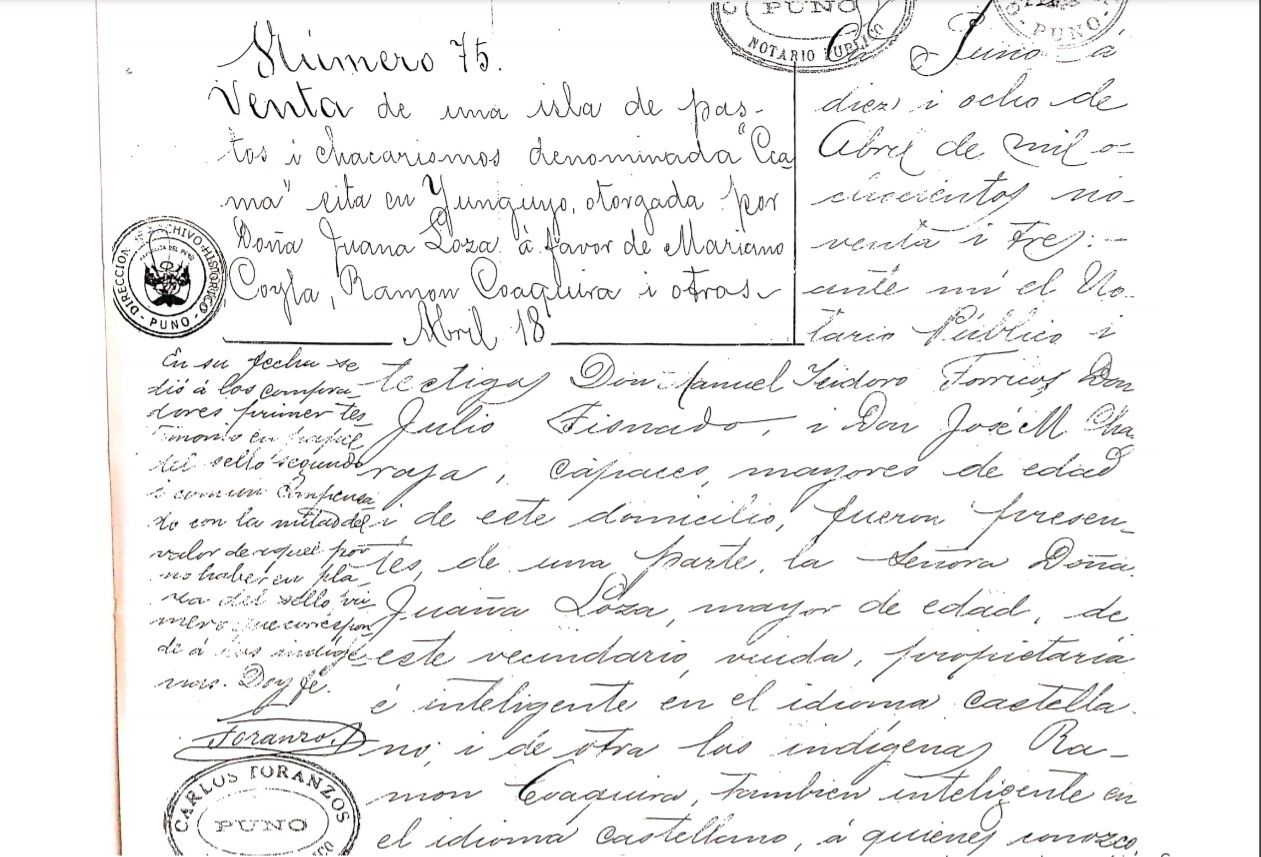 Número 75.
Venta de una isla de pas-
tos i chacarismos denominada "Cca
ma" sita en Yunguyo, otorgada por
Doña Juana Loza á favor de Mariano
Coyla, Ramon Coaquira i otros
Abril 18
PUNO
NOTARIO PUBLICO
PUNO
En Puno á
diez i ocho de
Abril de mil o-
chocientos no-
venta i tres:-
ante mí el No-
tario Público i
tectigos Don Manuel Isidoro Torricos, Don
Julio Tisnado, i Don José M Cha
raja, capaces, mayores de edad
i de este domicilio, fueron presen-
tes, de una parte, la Señora Doña
Juana Loza, mayor de edad, de
este vecindario, viuda, propietaria
é inteligente en el idioma castella-
no; i de otra los indígenas Ra-
mon Coaquira, tambien inteligente en
el idioma castellano, á quienes conozco,
DIRECCION DE ARCHIVO HISTORICO
- PUNO -
En su fecha se
dió á los compra
dores primer tes
timonio en papel
del sello segundo
i comun compensa
do con la mitad del
valor de aquel por
no haber en pla
za del sello pri
mero que correspon
de á los indíge
nas. Doy fé.
Toranzos
CARLOS TORANZOS
PUNO